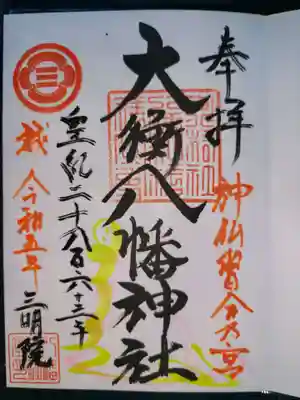 奉拝
神仏習合乃
大衡八幡神社
皇紀二千六百八十三年
令和五年
三明院